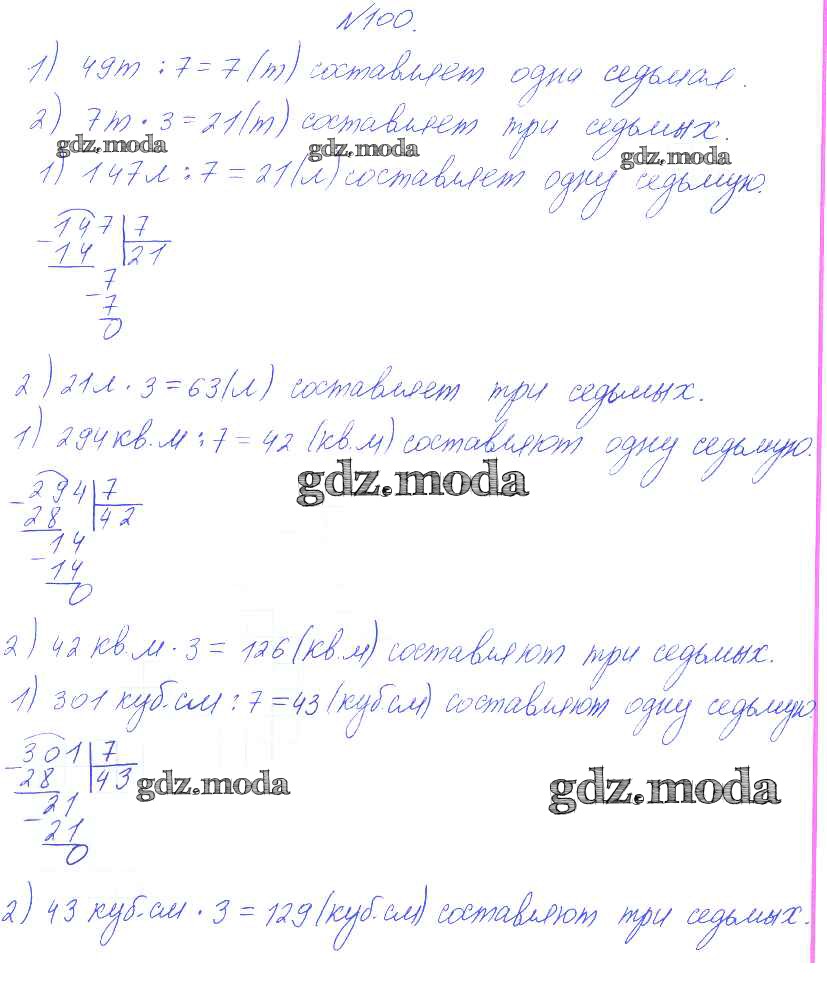 №100.
1) 49т : 7 = 7 (т) составляет одна седьмая.
2) 7т · 3 = 21 (т) составляет три седьмых.
gdz.moda gdz.moda gdz.moda
1) 147л : 7 = 21 (л) составляет одну седьмую.
147 7
14 21
7
7
0
2) 21л · 3 = 63 (л) составляет три седьмых.
1) 294 кв.м : 7 = 42 (кв.м) составляют одну седьмую.
gdz.moda
294 7
28 42
14
14
0
2) 42 кв.м · 3 = 126 (кв.м) составляют три седьмых.
1) 301 куб.см : 7 = 43 (куб.см) составляют одну седьмую.
301 7
28 43 gdz.moda gdz.moda
21
21
0
2) 43 куб.см · 3 = 129 (куб.см) составляют три седьмых.